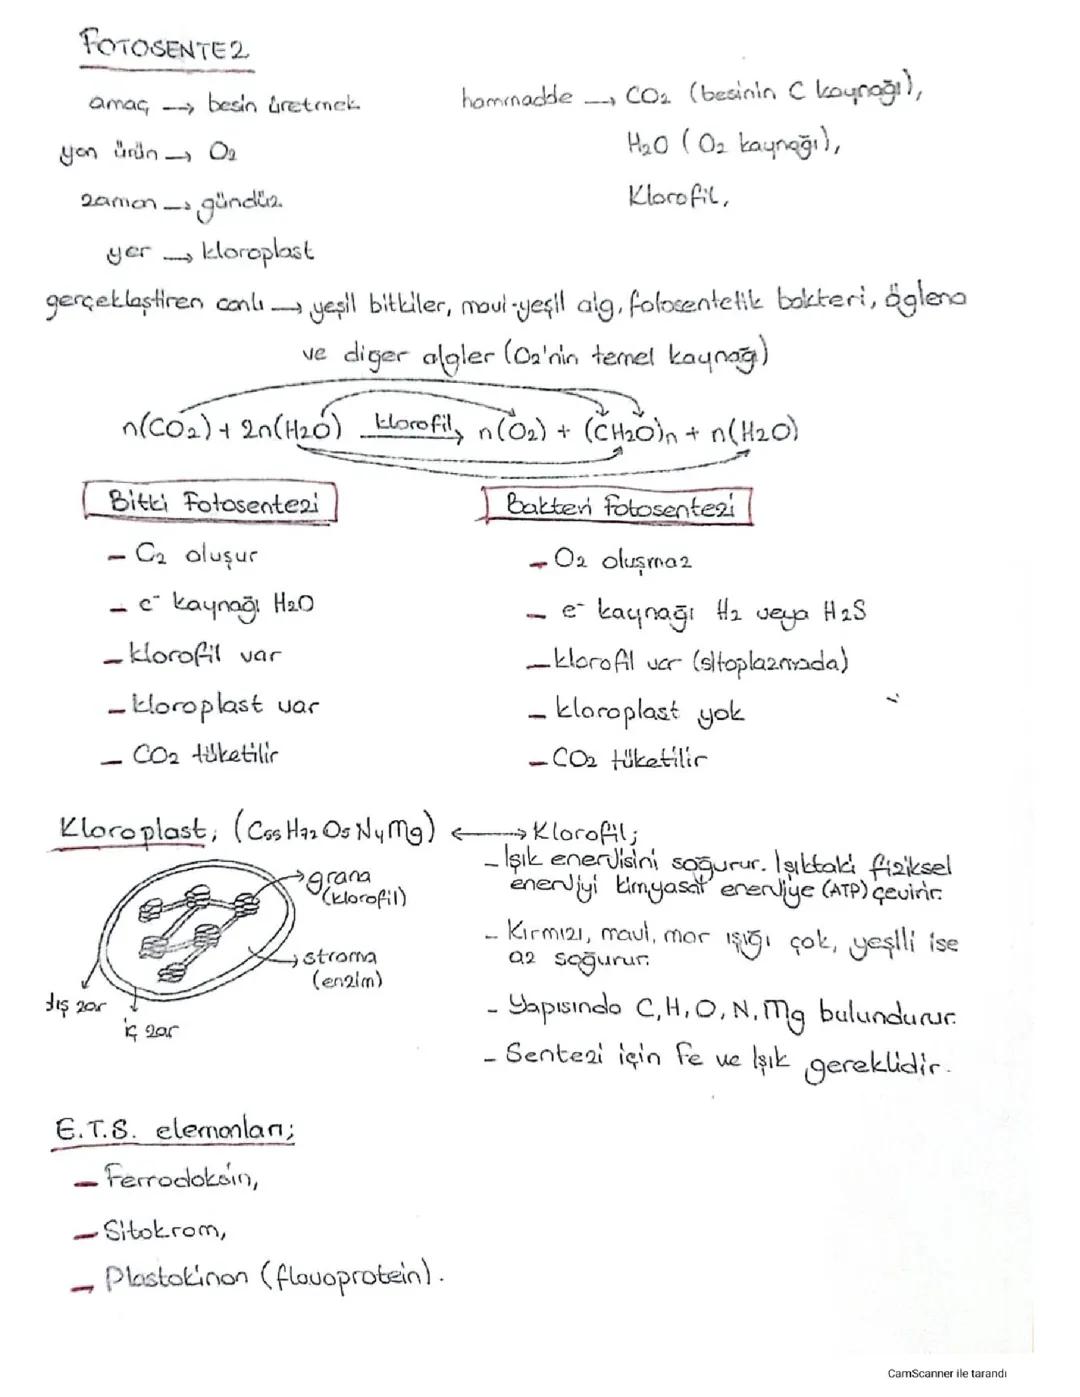 FOTOSENTEZ
amaç → besin üretmek
hammadde → CO2 (besinin C kaynağı),
yan ürün → O2
H2O (O2 kaynağı),
zaman → gündüz
Klorofil,
yer → kloroplast
gerçekleştiren canlı → yeşil bitkiler, mavi-yeşil alg, fotosentetik bakteri, öglena
ve diger algler (O2'nin temel kaynağı)
n(CO2) + 2n(H2O) klorofil → n(O2) + (CH2O)n + n(H2O)
Bitki Fotosentezi
- O2 oluşur
- e⁻ kaynağı H2O
- klorofil var
- kloroplast var
- CO2 tüketilir
Bakteri Fotosentezi
- O2 oluşmaz
- e⁻ kaynağı H2 veya H2S
- klorofil var (sitoplazmada)
- kloroplast yok
- CO2 tüketilir
Kloroplast; (C55H72O5N4Mg) ↔ Klorofil;
grana
(klorofil)
stroma
(enzim)
dış zar
iç zar
- Işık enerjisini soğurur. Işıktaki fiziksel
enerjiyi kimyasal enerjiye (ATP) çevirir.
- Kırmızı, mavi, mor ışığı çok, yeşili ise
az soğurur.
- Yapısında C, H, O, N, Mg bulundurur.
- Sentezi için Fe ve Işık gereklidir.
E.T.S. elemanları;
- Ferrodoksin,
- Sitokrom,
- Plastokinon (flavoprotein).
CamScanner ile tarandı